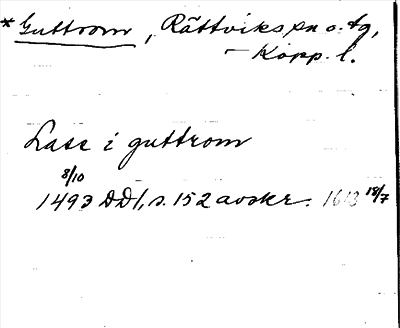 * Guttrom, Rättviks sn o. tg,
– Kopp. l.
Lasse i guttrom
8/10
1493 DD1, s. 152 avskr. 1613 18/7